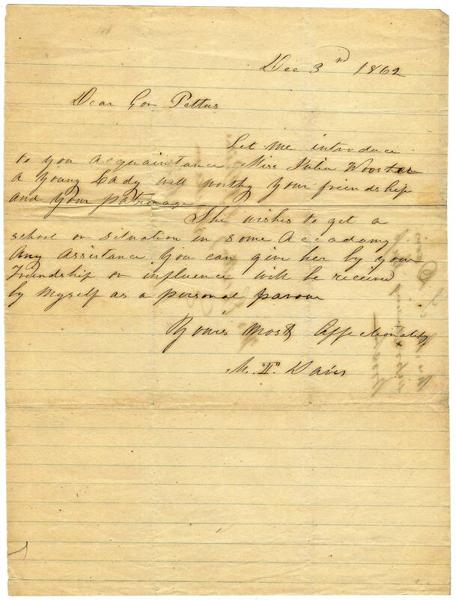 Dec 3rd 1862
Dear Gov Pettus
Let me introduce
to you acquaintance Miss Julia
a young Lady will worthy your friendship
and your patronage
She wishes to get a
school or situation in some Accadamy
Any Assistance You can give her by your
Friendship or influence will be receive
by Myself as a personal favour
Yours most Affectionately
M. "D" Davis